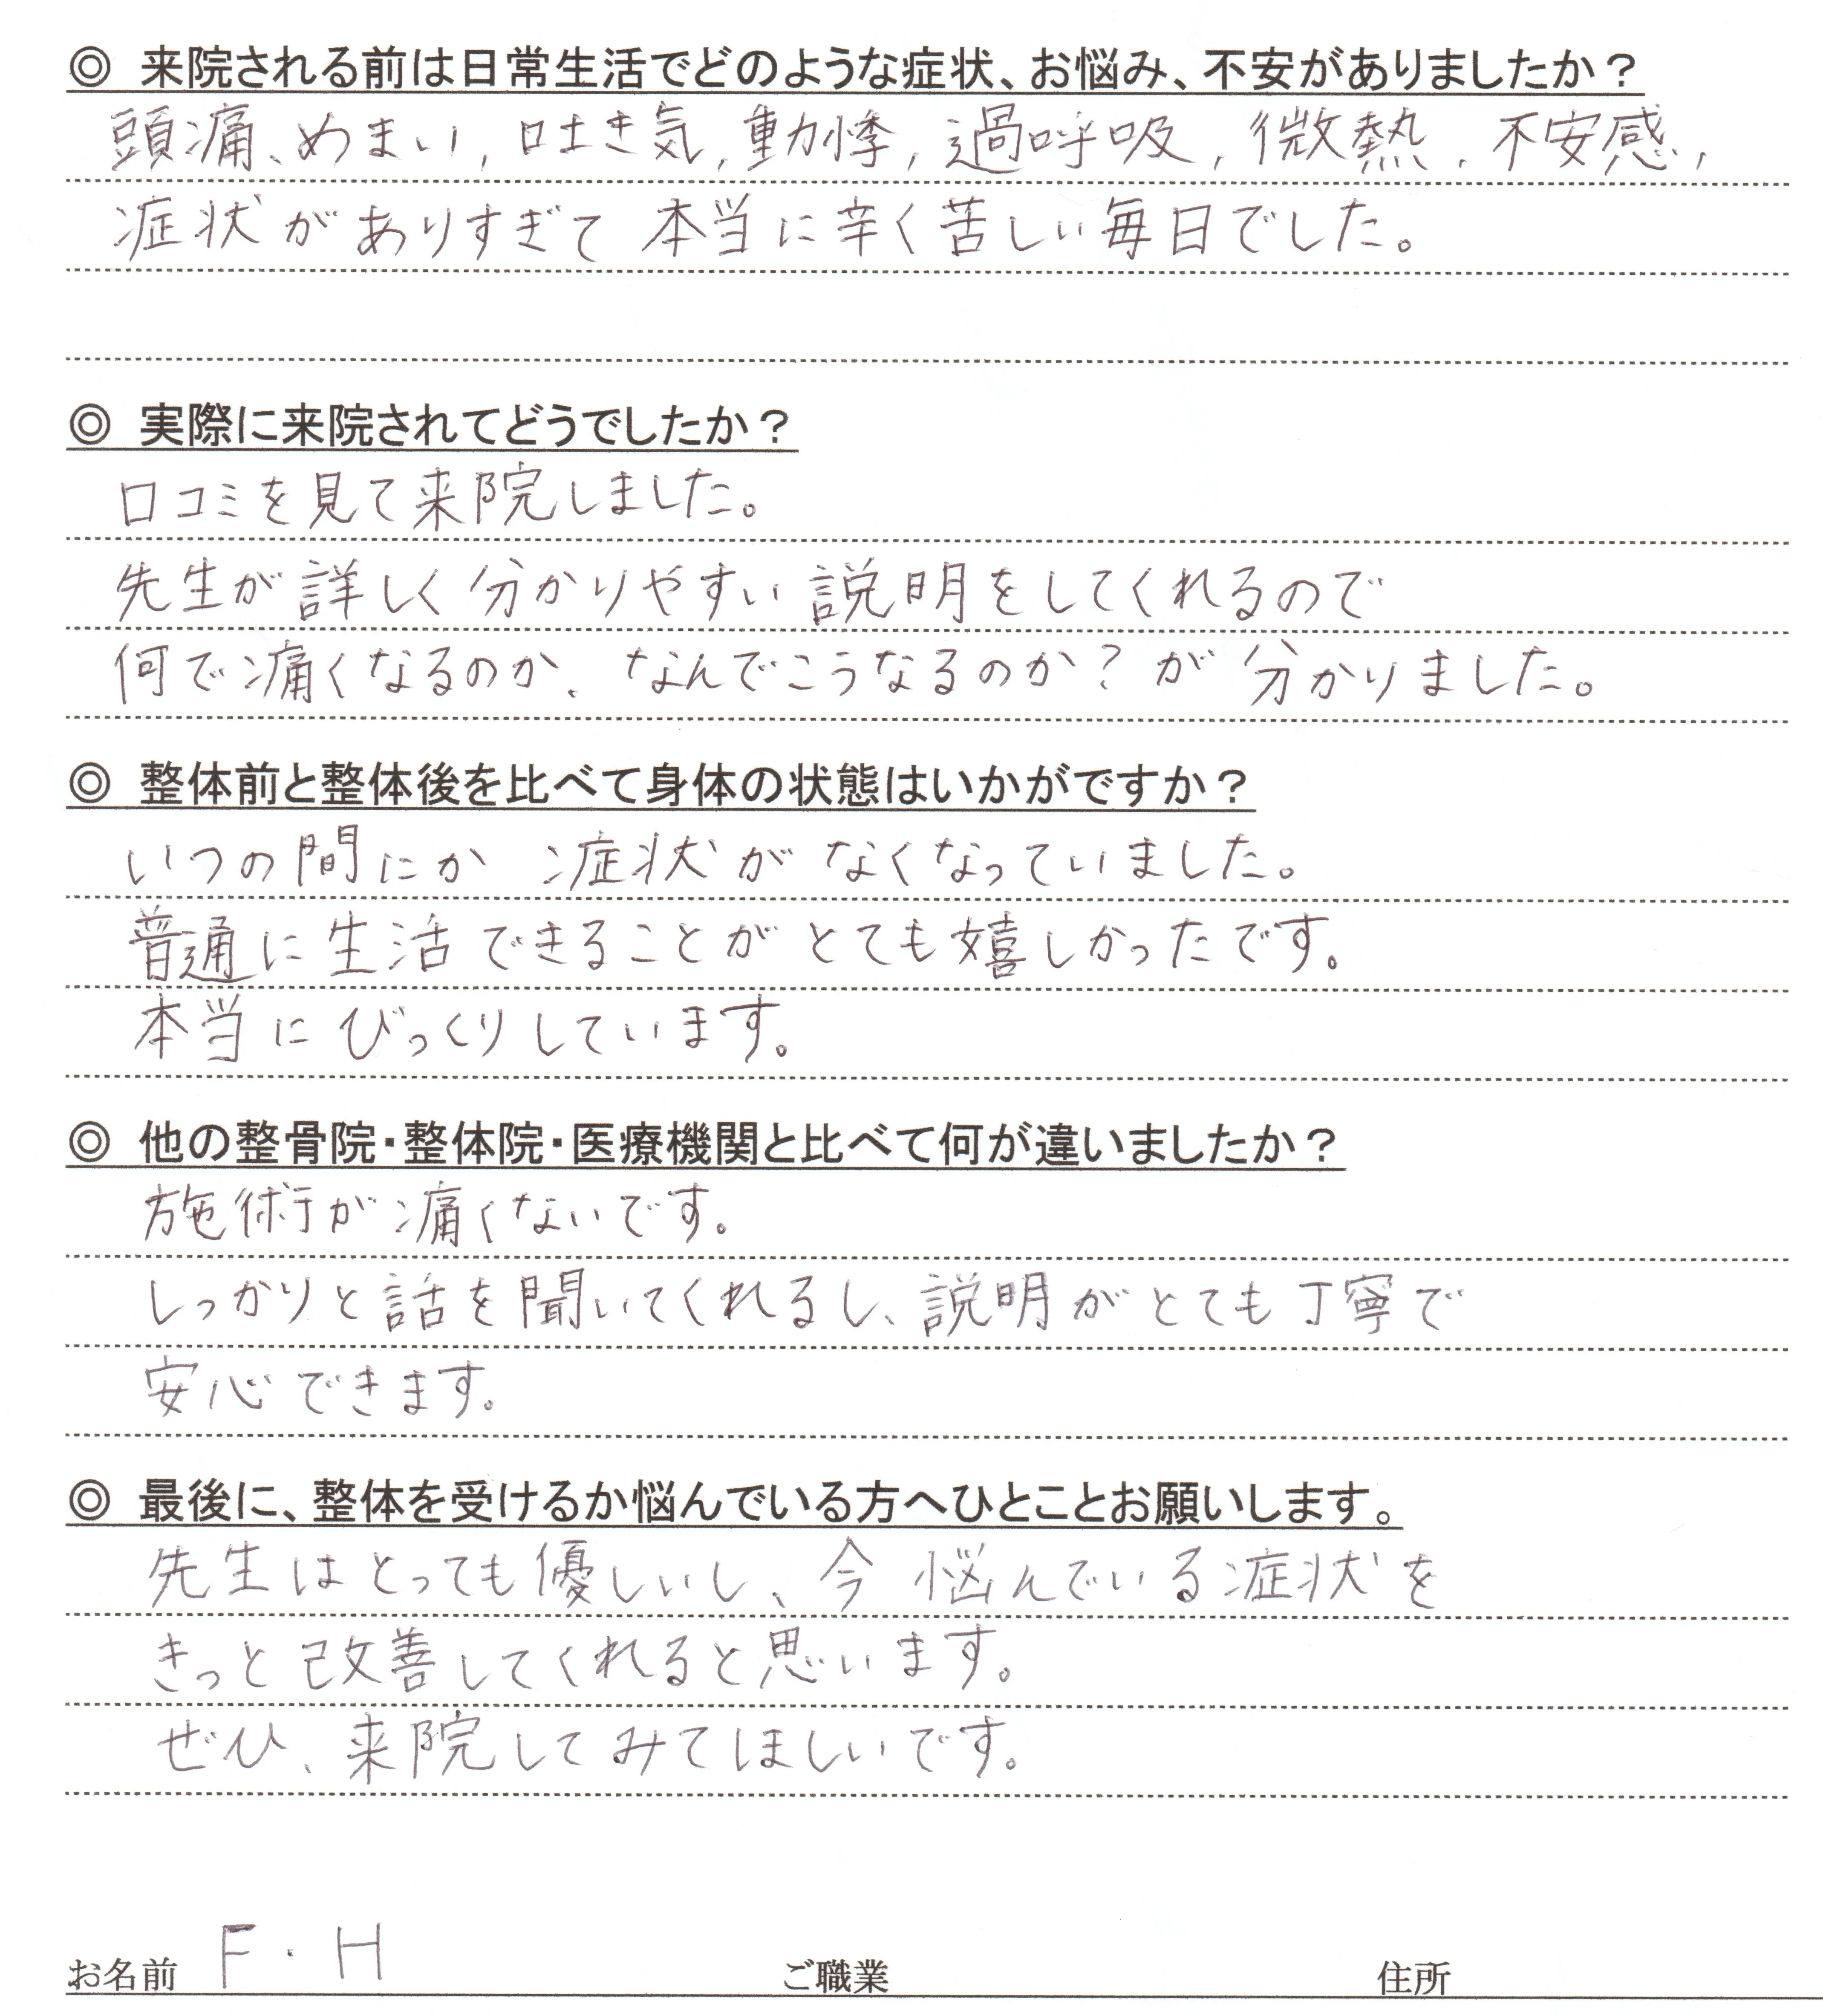 ◎ 来院される前は日常生活でどのような症状、お悩み、不安がありましたか？
頭痛、めまい, 吐き気, 動悸, 過呼吸, 微熱, 不安感,
症状がありすぎて 本当に辛く苦しい毎日でした。
◎ 実際に来院されてどうでしたか？
口コミを見て来院しました。
先生が詳しく分かりやすい説明をしてくれるので
何で痛くなるのか、なんでこうなるのか？が分かりました。
◎ 整体前と整体後を比べて身体の状態はいかがですか？
いつの間にか 症状がなくなっていました。
普通に生活できることがとても嬉しかったです。
本当にびっくりしています。
◎ 他の整骨院・整体院・医療機関と比べて何が違いましたか？
施術が痛くないです。
しっかりと話を聞いてくれるし、説明がとても丁寧で
安心できます。
◎ 最後に、整体を受けるか悩んでいる方へひとことお願いします。
先生はとっても優しいし、今 悩んでいる症状を
きっと改善してくれると思います。
ぜひ、来院してみてほしいです。
お名前 F・H ご職業 住所